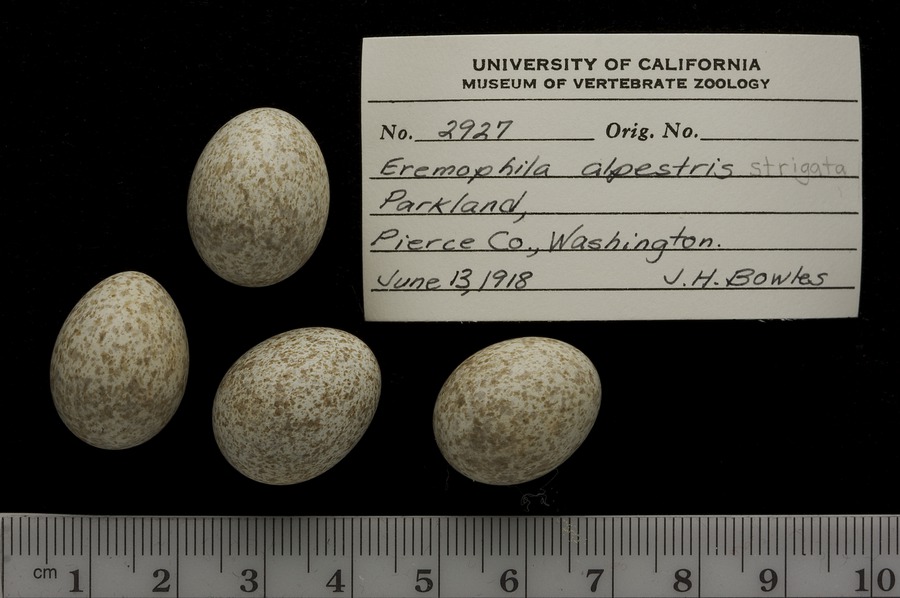 UNIVERSITY OF CALIFORNIA
MUSEUM OF VERTEBRATE ZOOLOGY
No. 2927 Orig. No.
Eremophila alpestris strigata
Parkland,
Pierce Co., Washington.
June 13, 1918 J.H. Bowles
cm 1 2 3 4 5 6 7 8 9 10